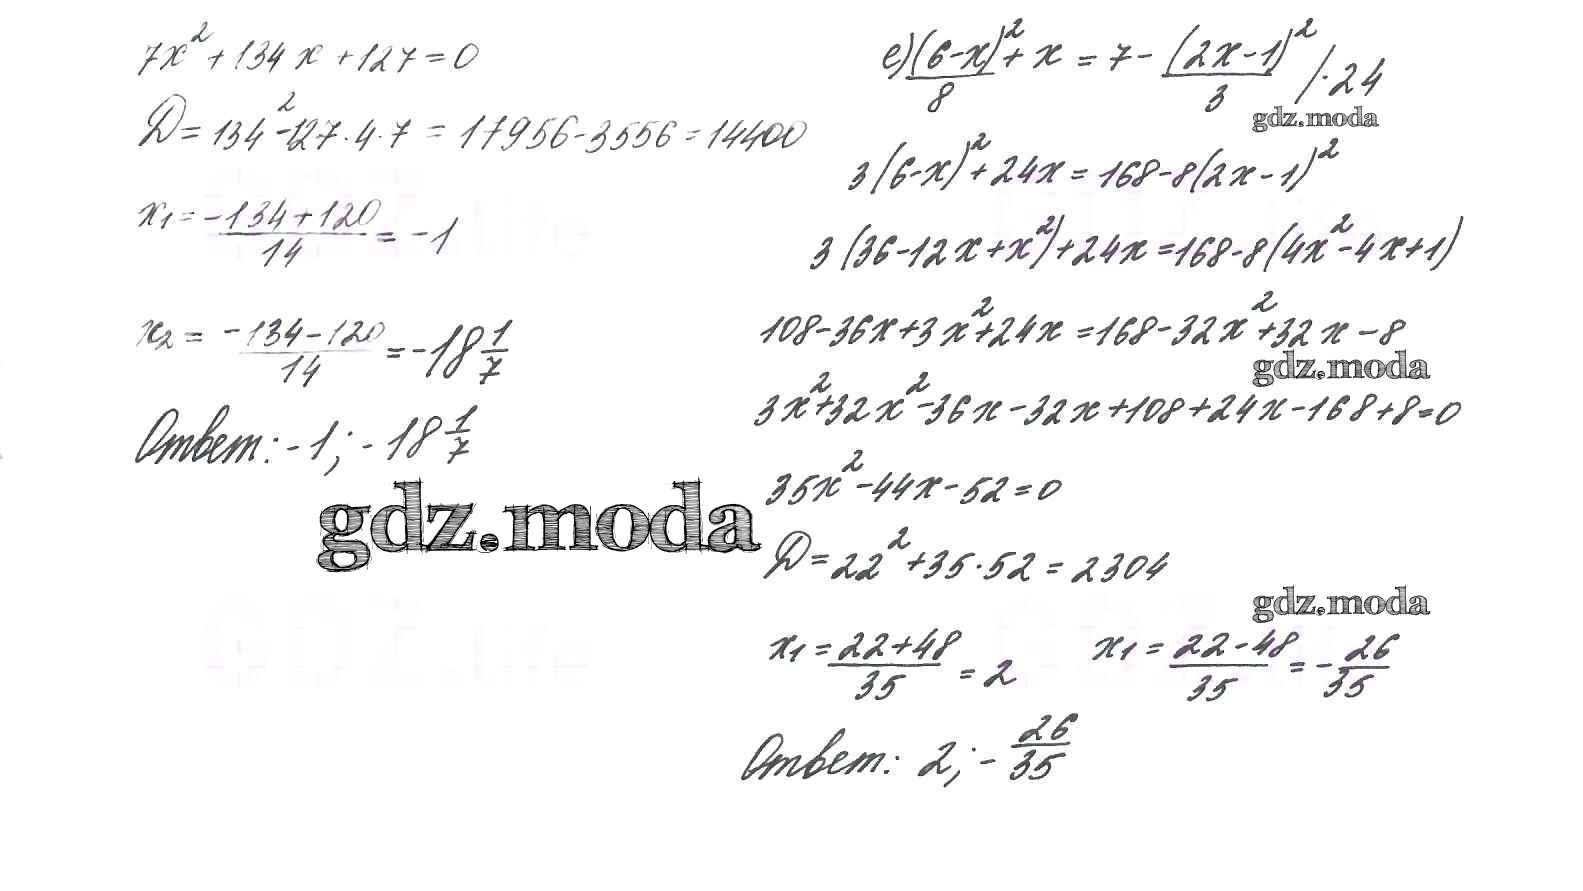 7x² + 134x + 127 = 0
D = 134² - 127 · 4 · 7 = 17956 - 3556 = 14400
x₁ = (-134 + 120)/14 = -1
x₂ = (-134 - 120)/14 = -18 1/7
Ответ: -1; -18 1/7
gdz.moda
е) (6-x)²/8 + x = 7 - (2x-1)²/3 / · 24
gdz.moda
3(6-x)² + 24x = 168 - 8(2x-1)²
3(36-12x+x²) + 24x = 168 - 8(4x²-4x+1)
108 - 36x + 3x² + 24x = 168 - 32x² + 32x - 8
gdz.moda
3x² + 32x² - 36x - 32x + 108 + 24x - 168 + 8 = 0
35x² - 44x - 52 = 0
D = 22² + 35 · 52 = 2304
gdz.moda
x₁ = (22+48)/35 = 2 x₁ = (22-48)/35 = -26/35
Ответ: 2; -26/35